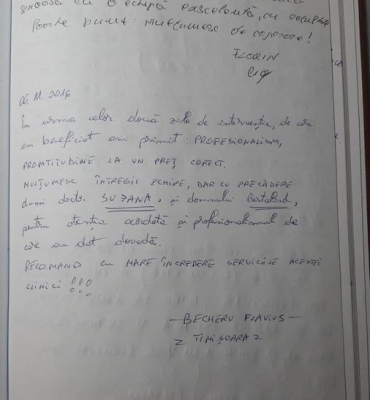 cu o echipă excelentă, cu
foarte bune. Mulțumesc de
Florin
06.11.2016
În urma celor două zile de intervenție, de care
am beneficiat am primit PROFESIONALISM,
PROMTITUDINE LA UN PREȚ CORECT.
MULȚUMESC ÎNTREGII ECHIPE, DAR CU PRECĂDERE
doctor SUZANA, și domnului
pentru atenția acordată și profesionalismul de
care au dat dovadă.
RECOMAND CU MARE ÎNCREDERE SERVICIILE ACESTEI
CLINICI !!!
— BECHERU FLAVIUS —
TIMIȘOARA